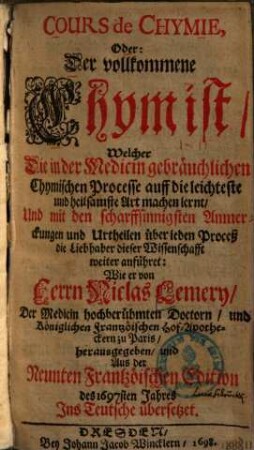 COURS de CHYMIE,
Oder:
Der vollkommene
Chymist/
Welcher
Die in der Medicin gebräuchlichen
Chymischen Processe auff die leichteste
und heilsamste Art machen lernt/
Und mit den scharffsinnigsten Anmer-
ckungen und Urtheilen über ieden Proceß
die Liebhaber dieser Wissenschafft
weiter anführet:
Wie er von
Herrn Niclas Lemery/
Der Medicin hochberühmten Doctorn/ und
Königlichen Frantzöischen Hof-Apothe-
ckern zu Paris/
herausgegeben/ und
Aus der
Neunten Frantzöischen Edition
des 1697sten Jahres
Ins Teutsche übersetzet.
DRESDEN/
Bey Johann Jacob Wincklern/ 1698.